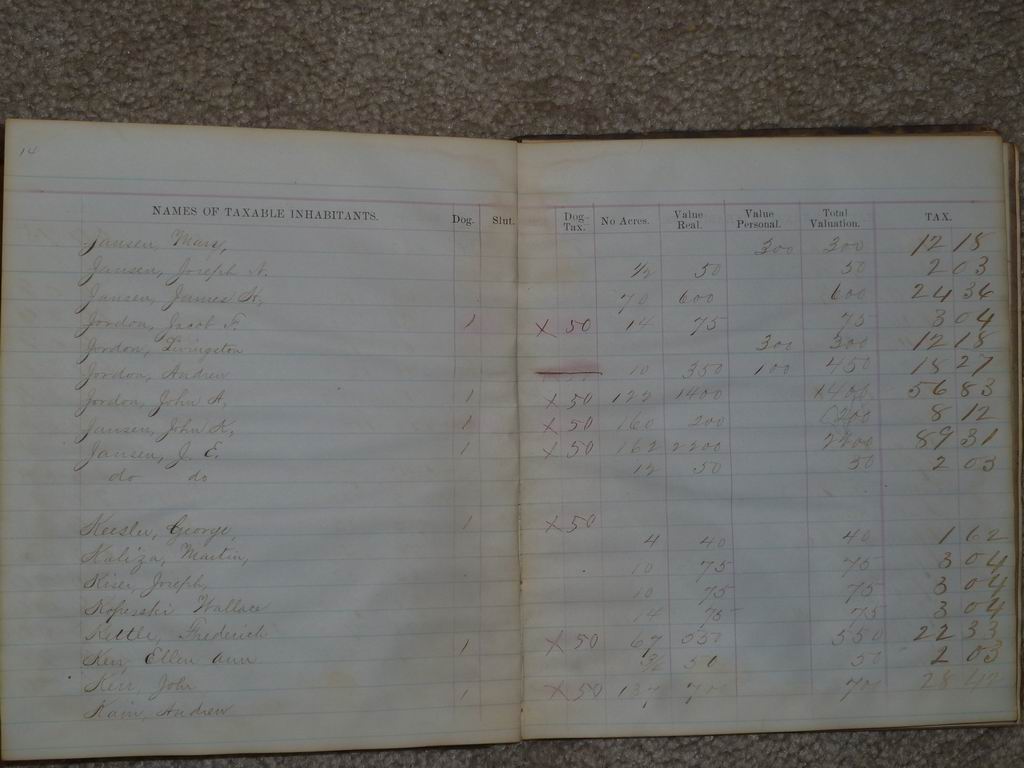 14
NAMES OF TAXABLE INHABITANTS. Dog. Slut. Dog-Tax. No Acres. Value Real. Value Personal. Total Valuation. TAX.
Jansen, Mary, 300 300 12 18
Jansen, Joseph N. 1/2 50 50 2 03
Jansen, James H, 70 600 600 24 36
Jordon, Jacob F. 1 X 50 14 75 75 3 04
Jordon, Livingston 300 300 12 18
Jordon, Andrew 10 350 100 450 18 27
Jordon, John A, 1 X 50 122 1400 1400 56 83
Jansen, John K, 1 X 50 160 200 200 8 12
Jansen, J. E. 1 X 50 162 2200 2200 89 31
do do 12 50 50 2 03
Keesler, George, 1 X 50
Kaliza, Martin, 4 40 40 1 62
Kiser, Joseph, 10 75 75 3 04
Wallace 10 75 75 3 04
Kettle, Frederick 14 75 75 3 04
Kerr, Ellen Ann 1 X 50 67 550 550 22 33
Kerr, John 50 50 2 03
Kain, Andrew 1 X 50 137 700 700 28 42